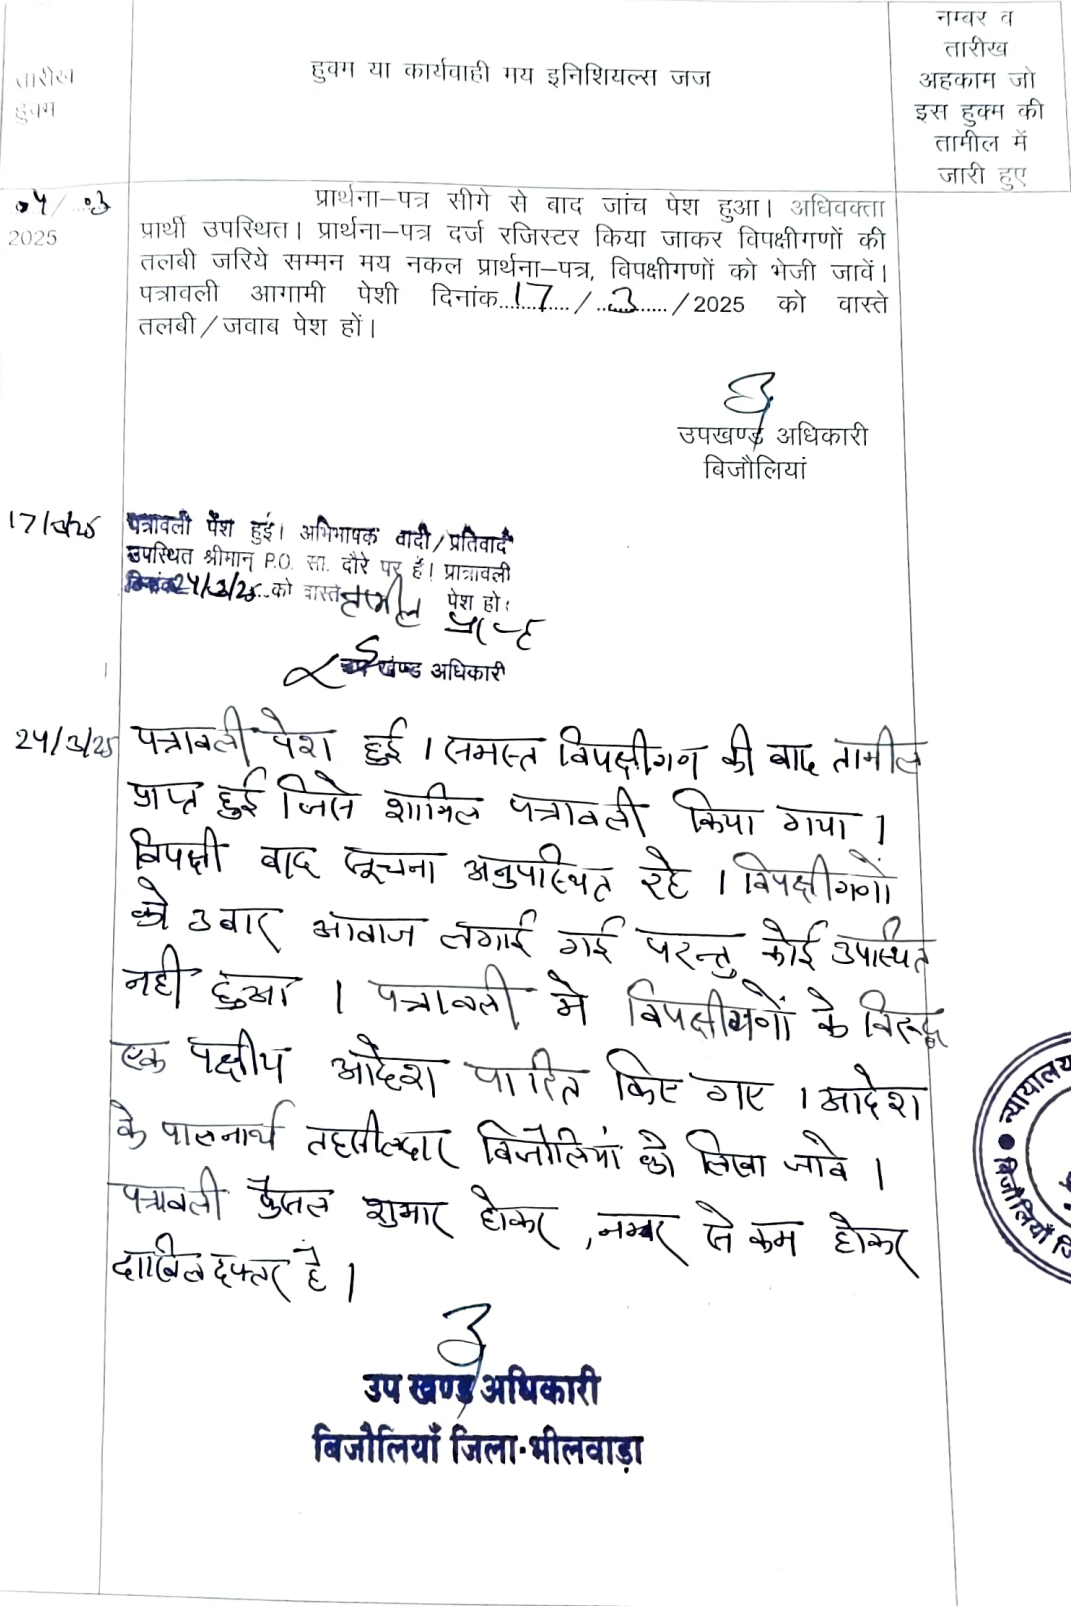 नम्बर व
तारीख
अहकाम जो
इस हुक्म की
तामील में
जारी हुए
तारीख
हुक्म
हुक्म या कार्यवाही मय इनिशियल्स जज
04/..03
2025
प्रार्थना–पत्र सीगे से बाद जांच पेश हुआ। अधिवक्ता
प्रार्थी उपस्थित। प्रार्थना–पत्र दर्ज रजिस्टर किया जाकर विपक्षीगणों की
तलबी जरिये सम्मन मय नकल प्रार्थना–पत्र, विपक्षीगणों को भेजी जावें।
पत्रावली आगामी पेशी दिनांक...17.../...3.../2025 को वास्ते
तलबी/जवाब पेश हों।
उपखण्ड अधिकारी
बिजौलियां
17/3/25
पत्रावली पेश हुई। अभिभाषक वादी/प्रतिवादी
उपस्थित श्रीमान् P.O. सा. दौरे पर है। प्रात्रावली
दिनांक24/3/25..को वास्ते तामील पेश हो।
उप खण्ड अधिकारी
24/3/25
पत्रावली पेश हुई। समस्त विपक्षीगन की बाद तामील
प्राप्त हुई जिसे शामिल पत्रावली किया गया।
विपक्षी बाद सूचना अनुपस्थित रहे। विपक्षीगणों
को 3 बार आवाज लगाई गई परन्तु कोई उपस्थित
नही हुआ। पत्रावली मे विपक्षीगणों के विरूद्ध
एक पक्षीय आदेश पारित किए गए। आदेश
के पालनार्थ तहसीलदार बिजौलियां को लिखा जावे।
पत्रावली फैसल शुमार होकर, नम्बर से कम होकर
दाखिल दफ्तर है।
उप खण्ड अधिकारी
बिजौलियाँ जिला-भीलवाड़ा
न्यायालय
बिजौलियाँ